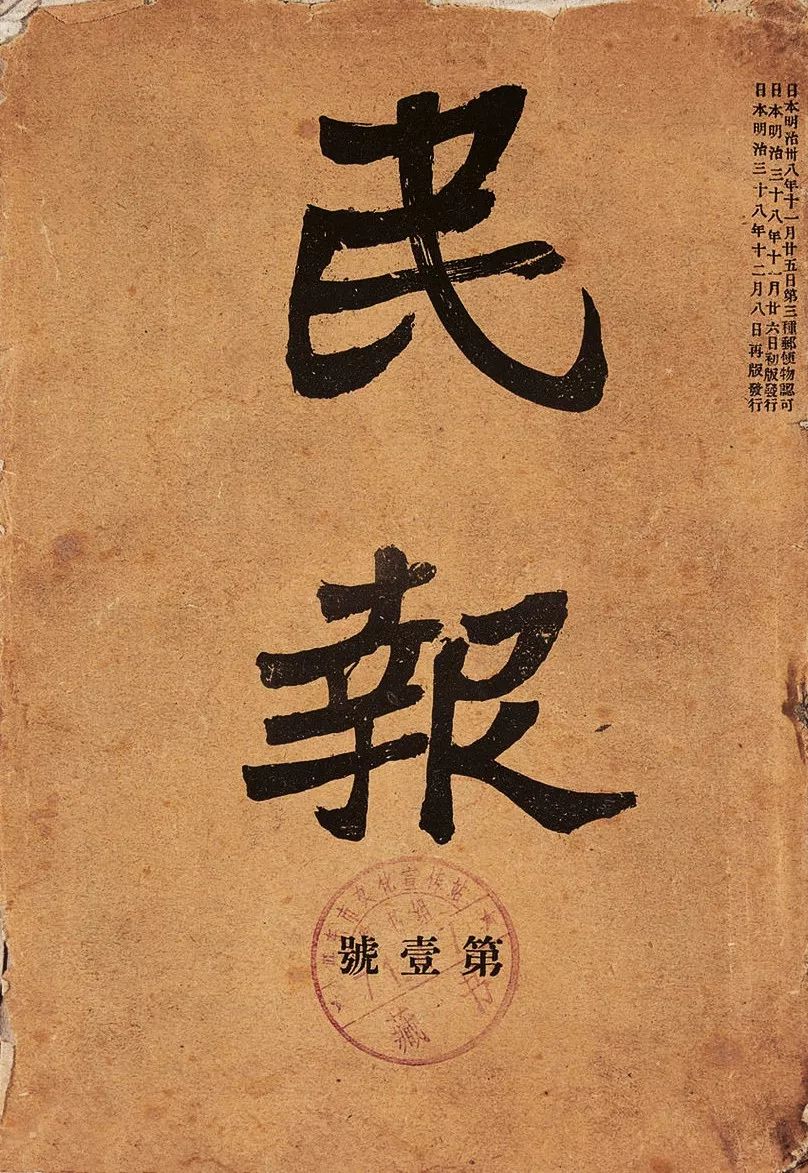 日本明治卅八年十一月廿五日第三種郵便物認可
日本明治三十八年十一月廿六日初版發行
日本明治三十八年十二月八日再版發行
民報
第壹號
市文化宣傳站
藏